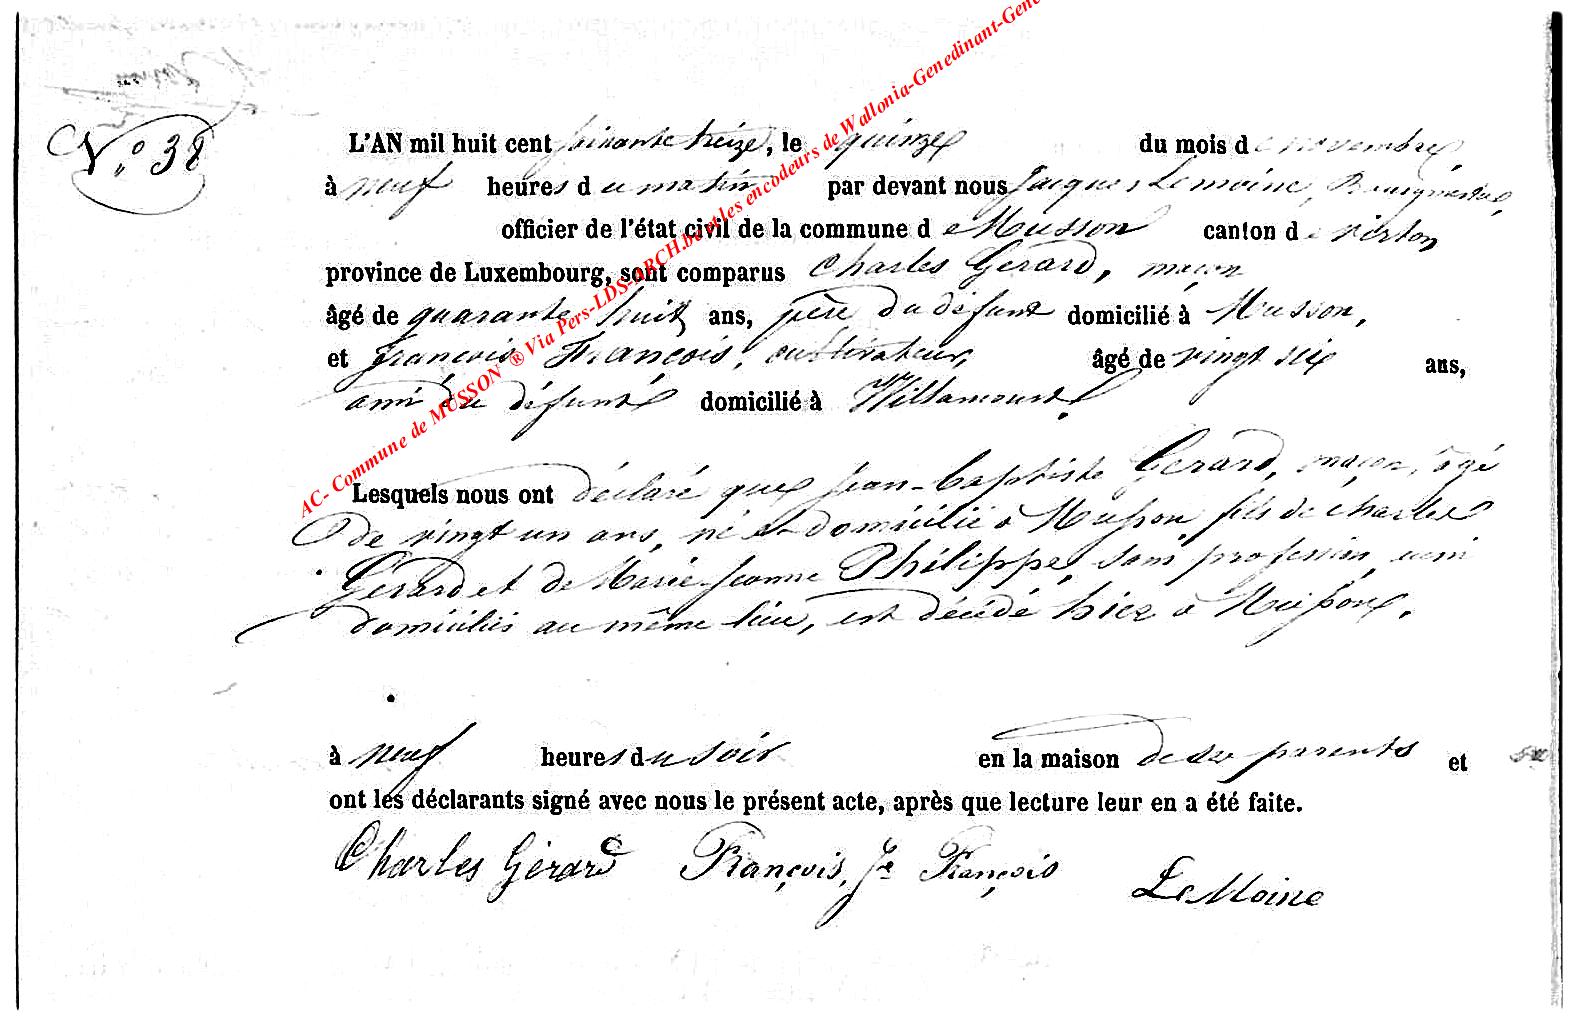 N.° 38
L'AN mil huit cent soixante treize, le quinze du mois de novembre,
à neuf heures du matin par devant nous Jacques Lemoine, Bourgmestre,
officier de l'état civil de la commune de Musson canton de Virton
province de Luxembourg, sont comparus Charles Gerard, maçon
âgé de quarante huit ans, père du défunt domicilié à Musson,
et françois François, cultivateur, âgé de vingt six ans,
ami du défunt domicilié à Willancourt.
Lesquels nous ont déclaré que Jean-baptiste Gerard, maçon, âgé
de vingt un ans, né et domicilié à Musson, fils de Charles
Gerard et de Marie-Jeanne Philippe, sans profession,
domiciliés au même lieu, est décédé hier à Musson,
à neuf heures du soir en la maison de ses parents et
ont les déclarants signé avec nous le présent acte, après que lecture leur en a été faite.
Charles Gérard François, Je François LeMoine
AC- Commune de MUSSON ® Via Pers-LDS-ARCH.be et les encodeurs de Wallonia-Genedinant-Gene